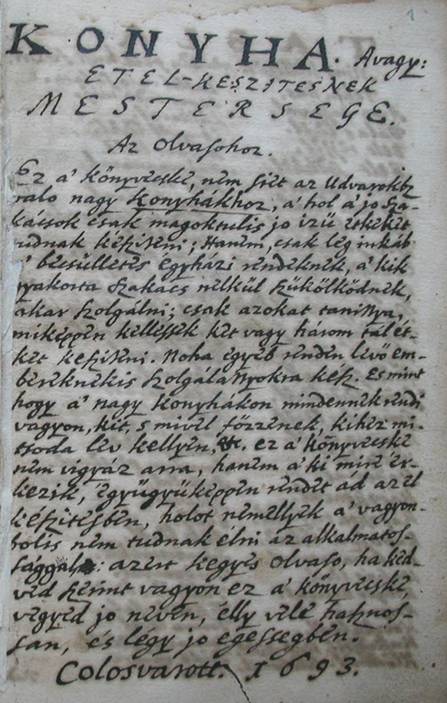 1
KONYHA. Avagy:
ETEL-KESZITESNEK
MESTERSEGE.
Az Olvasohoz.
Ez a' Könyvecske, nem siet az Udvarokhz
valo nagy Konyhákhoz, a' hol a' jo Sza-
kácsok csak magoktulis jo izü étkeket
tudnak késziteni; Hanem, csak leg inkáb
a' becsülletes egyházi rendeknek, a' kik
gyakorta Szakács nélkül szükölködnek,
akar szolgálni; csak azokat tanittya,
miképpen kellessék két vagy három tál ét-
ket késziteni. Noha egyéb renden lévö em-
bereknekis szolgálattyokra kész. Es mint
hogy a' nagy Konyhákon mindennek rendi
vagyon, kit, s mivel fözzenek, kihez mi-
tsoda lév kellyen, &c. ez a' Könyvecske
nem vigyáz arra, hanem a' ki mire ér-
kezik, együgyüképpen rendet ad az el
készitésben, holot némellyek a' vagyon-
bolis nem tudnak élni az alkalmatos-
sággal: azért kegyes olvaso, ha ked-
ved szerint vagyon ez a' könyvecske,
vegyed jo néven, elly vele hasznos-
san, és légy jo egessegben.
Colosvarott. 1693.